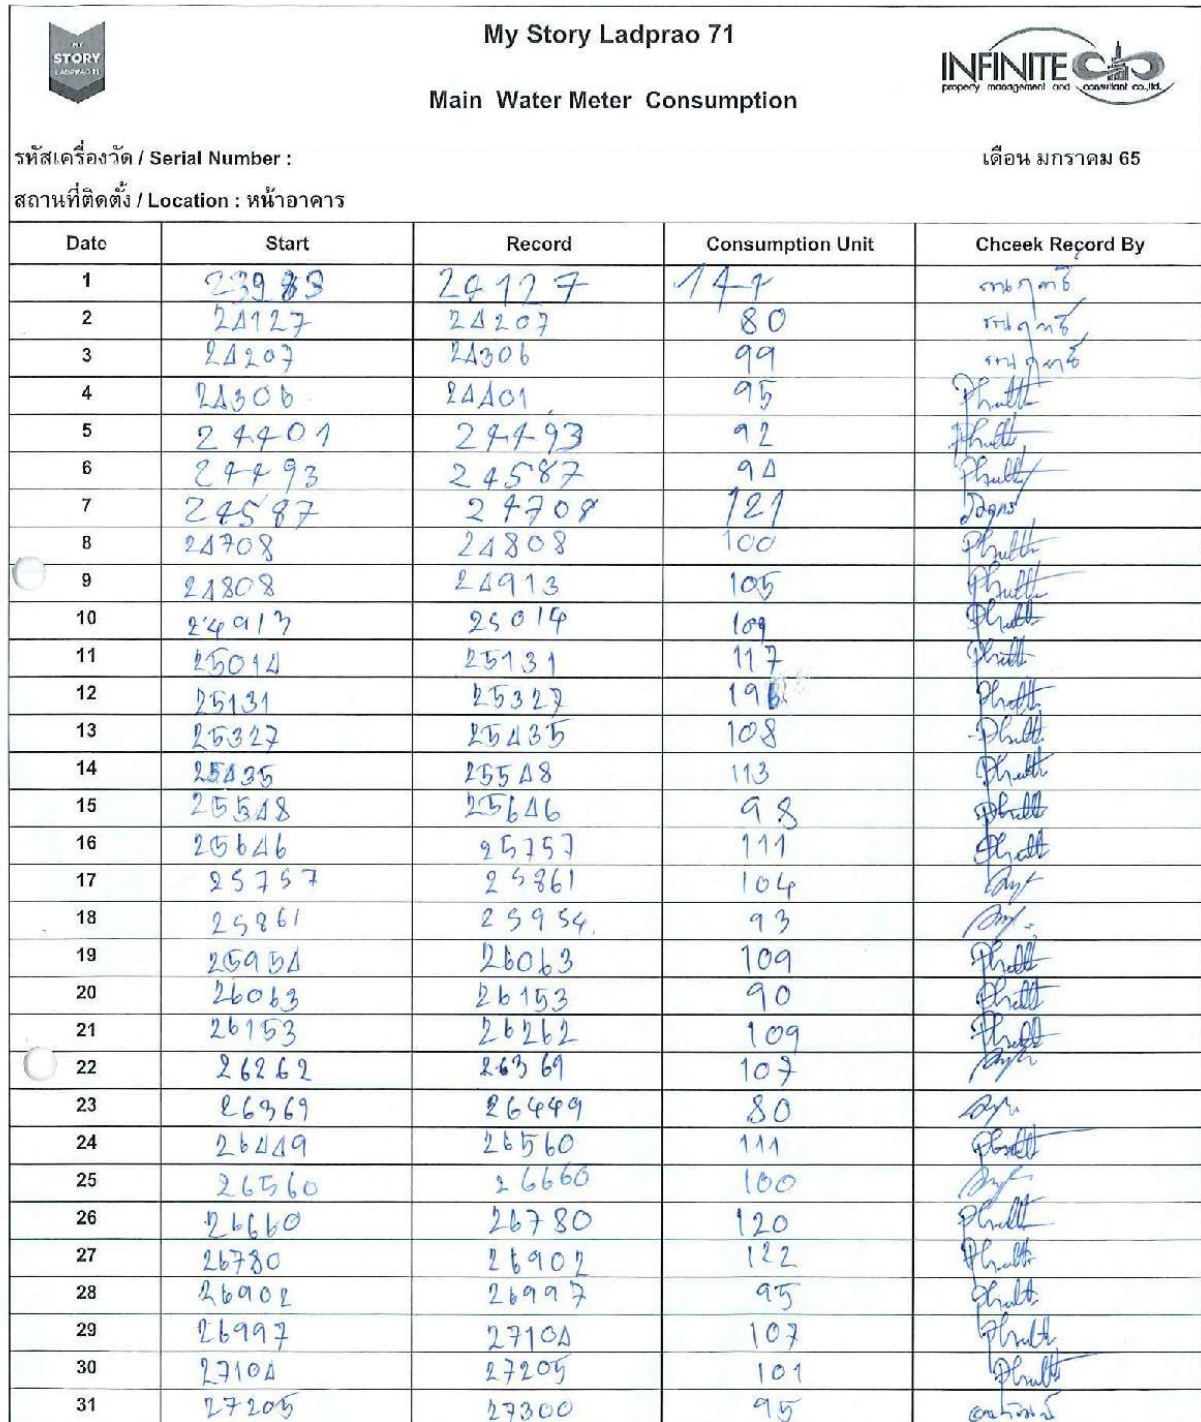 MY
STORY
LADPRAO 71
My Story Ladprao 71
INFINITE
property management and consultant co.,ltd.
Main Water Meter Consumption
รหัสเครื่องวัด / Serial Number :
เดือน มกราคม 65
สถานที่ติดตั้ง / Location : หน้าอาคาร
Date Start Record Consumption Unit Chceek Record By
1 23983 24127 144
2 24127 24207 80
3 24207 24306 99
4 24306 24401 95
5 24401 24493 92
6 24493 24587 94
7 24587 24708 121
8 24708 24808 100
9 24808 24913 105
10 24913 25014 109
11 25014 25131 117
12 25131 25327 196
13 25327 25435 108
14 25435 25548 113
15 25548 25646 98
16 25646 25757 111
17 25757 25861 104
18 25861 25954 93
19 25954 26063 109
20 26063 26153 90
21 26153 26262 109
22 26262 26369 107
23 26369 26449 80
24 26449 26560 111
25 26560 26660 100
26 26660 26780 120
27 26780 26902 122
28 26902 26997 95
29 26997 27104 107
30 27104 27205 101
31 27205 27300 95